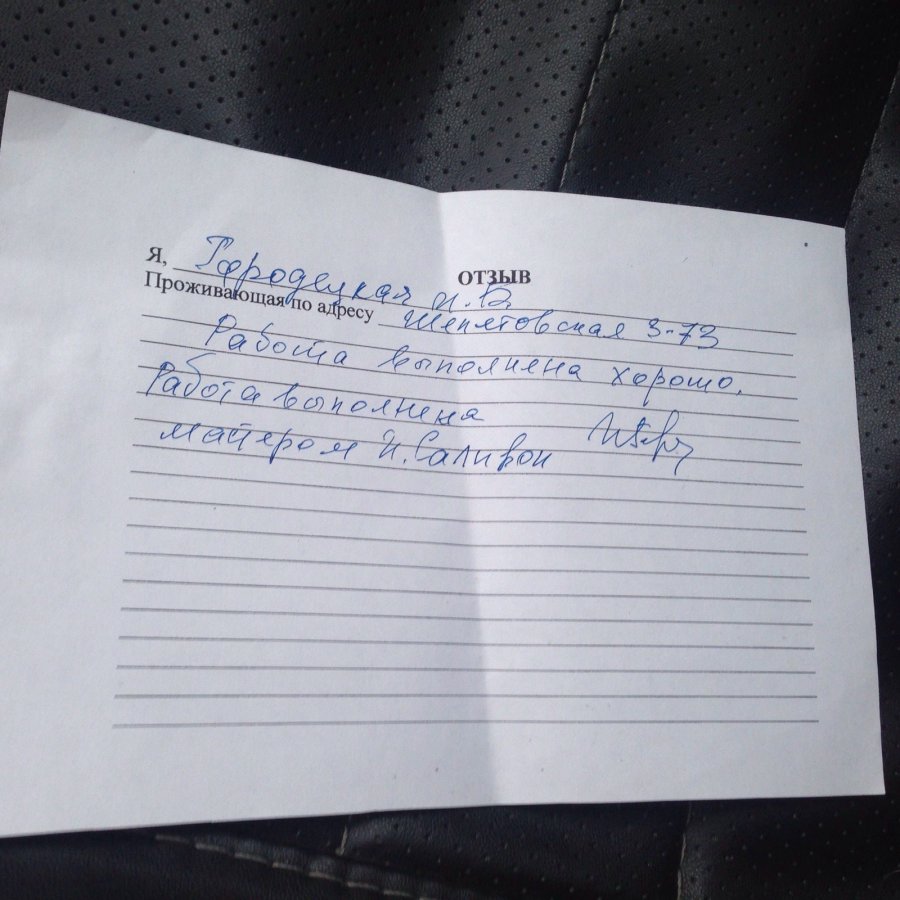 ОТЗЫВ
Я, Городецкая И.В
Проживающая по адресу Шепетовская 3-73
Работа выполнена хорошо.
Работа выполнена
мастером И. Саливон